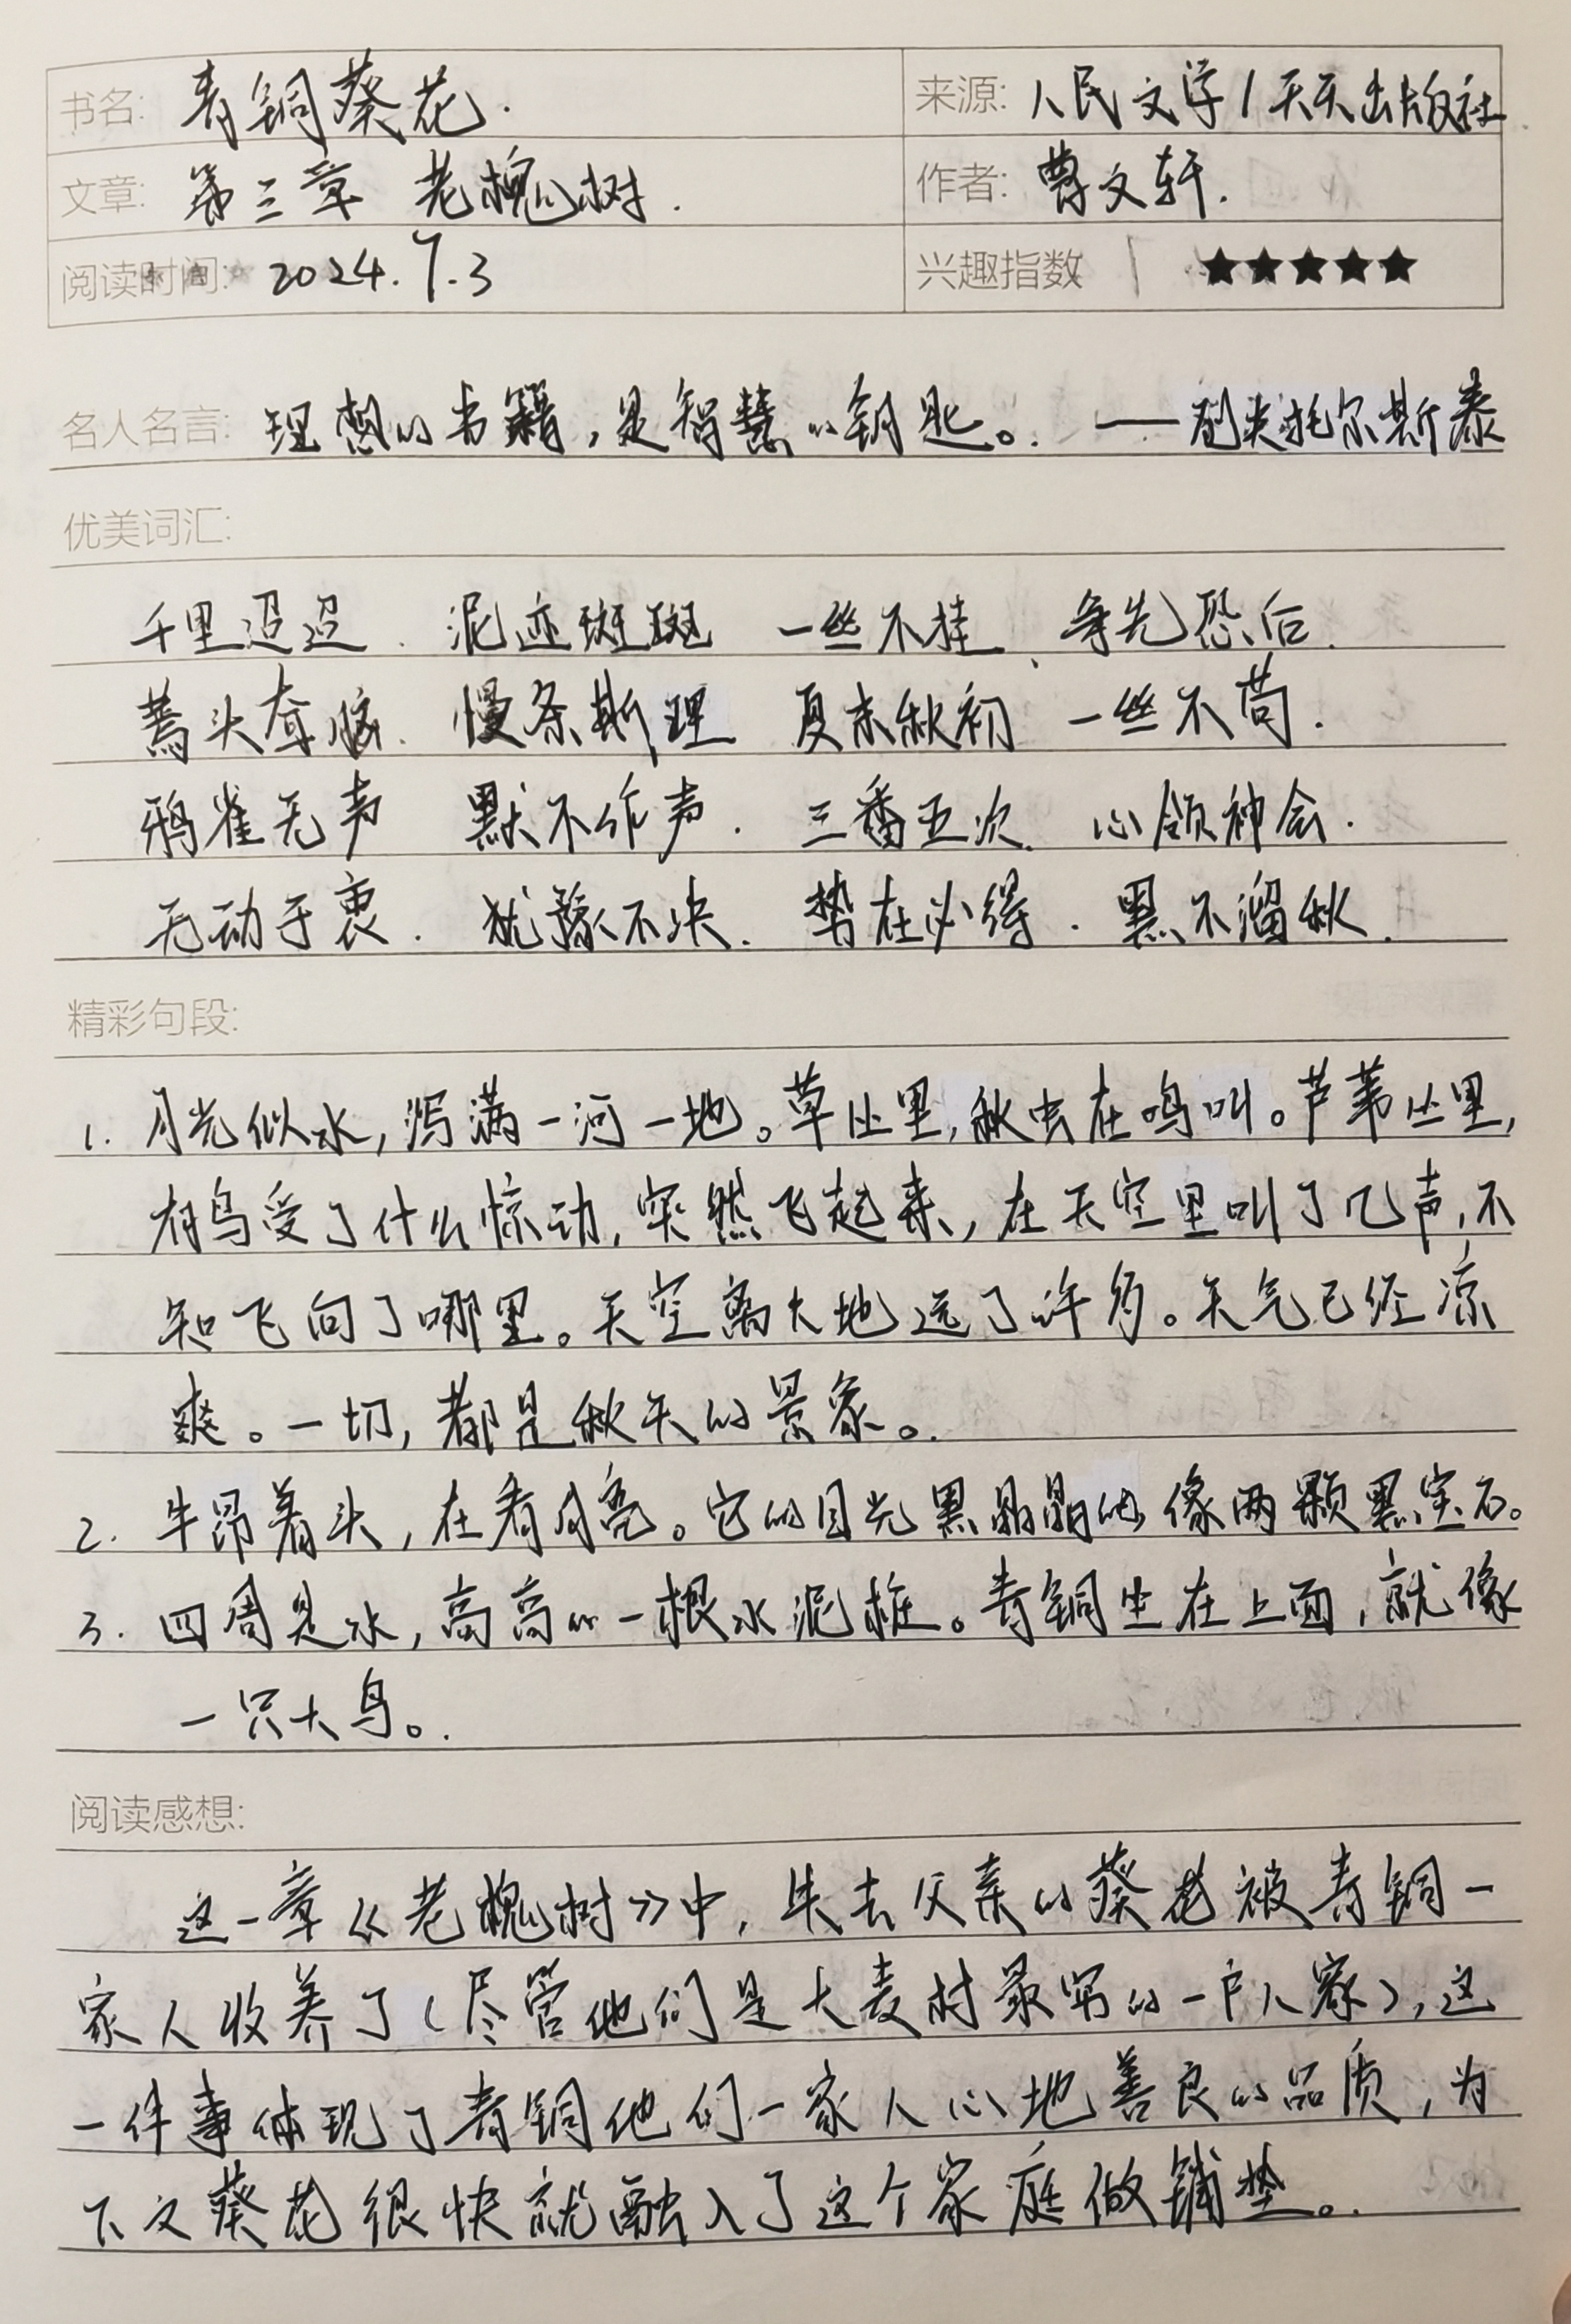 书名: 青铜葵花. 来源: 人民文学/天天出版社.
文章: 第三章 老槐树. 作者: 曹文轩.
阅读时间: 2024.7.3 兴趣指数 ★★★★★
名人名言: 理想的书籍,是智慧的钥匙。. ——列夫托尔斯泰
优美词汇:
千里迢迢. 泥迹斑斑 一丝不挂、争先恐后.
蔫头耷脑. 慢条斯理 夏末秋初 一丝不苟.
鸦雀无声 默不作声. 三番五次. 心领神会.
无动于衷. 犹豫不决. 势在必得. 黑不溜秋.
精彩句段:
1. 月光似水,泻满一河一地。草丛里,秋虫在鸣叫。芦苇丛里,
有鸟受了什么惊动,突然飞起来,在天空里叫了几声,不
知飞向了哪里。天空离大地远了许多。天气已经凉
爽。一切,都是秋天的景象。.
2. 牛昂着头,在看月亮。它的目光黑晶晶的像两颗黑宝石。
3. 四周是水,高高的一根水泥桩。青铜坐在上面,就像
一只大鸟。.
阅读感想:
这一章《老槐树》中,失去父亲的葵花被青铜一
家人收养了(尽管他们是大麦村最穷的一户人家),这
一件事体现了青铜他们一家人心地善良的品质,为
下文葵花很快就融入了这个家庭做铺垫。.